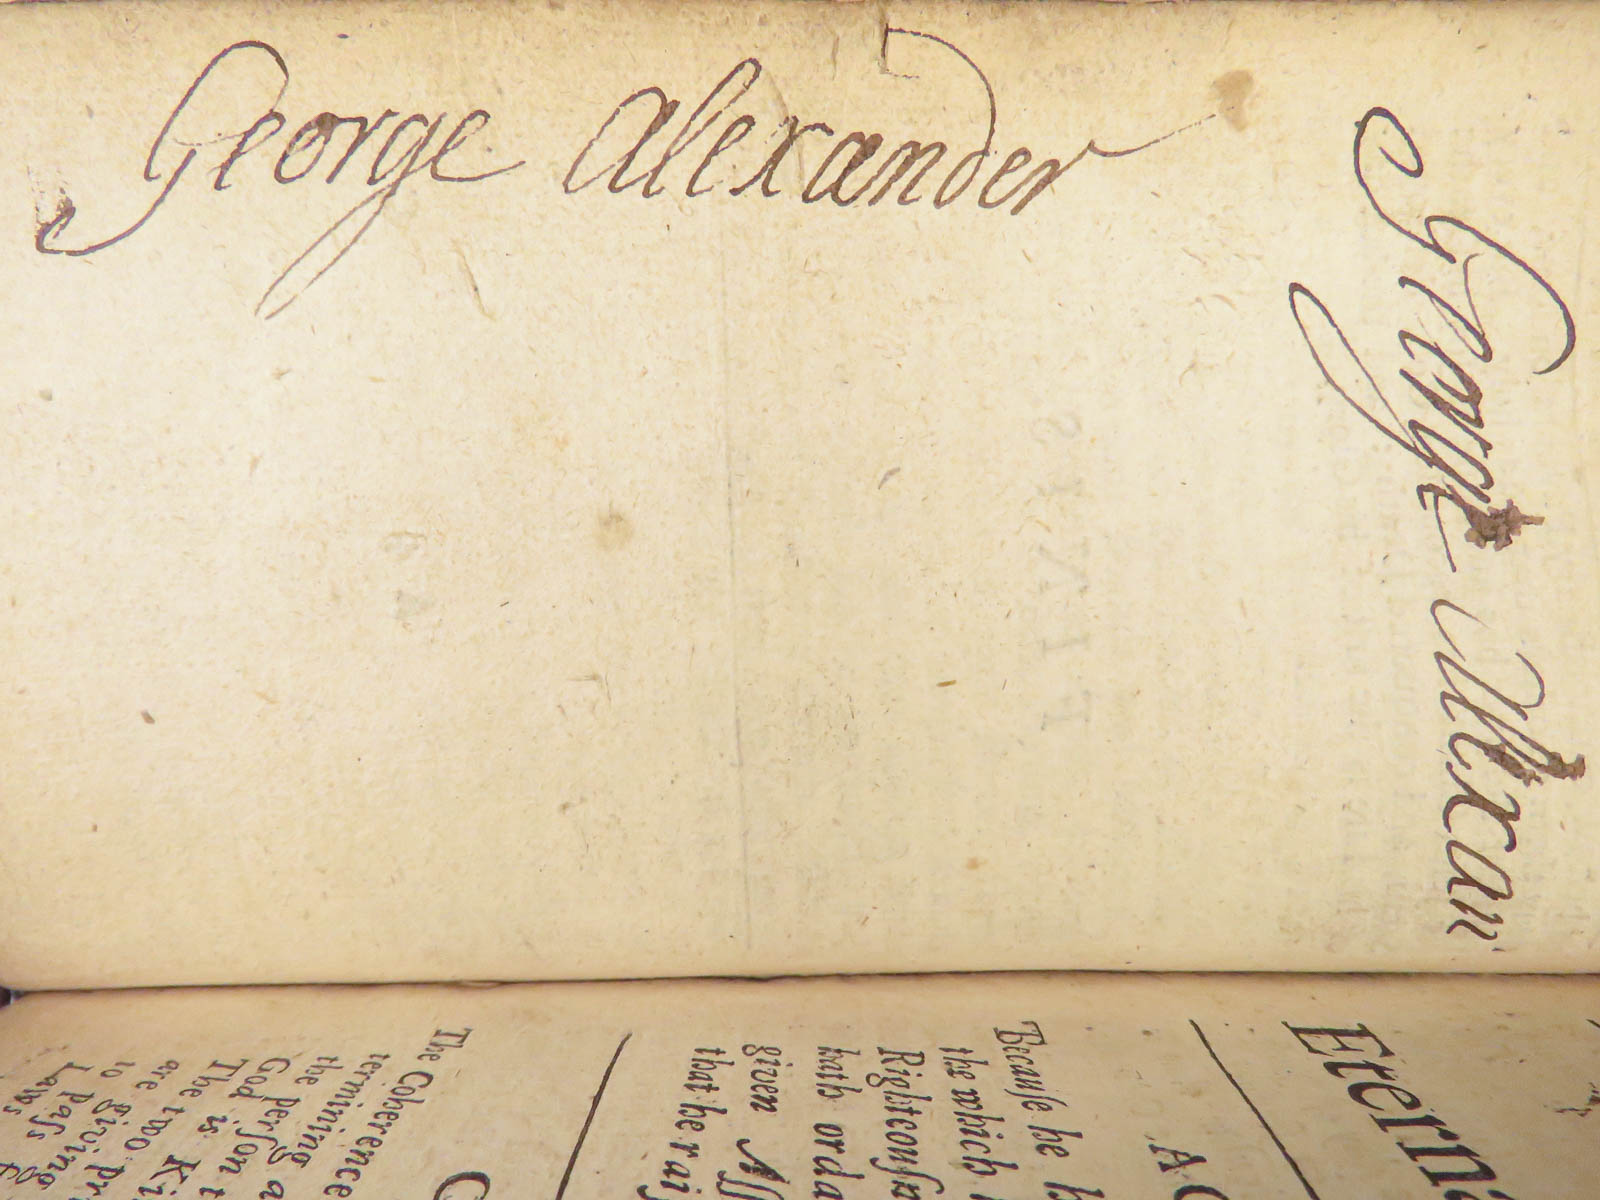 George Alexander
George Alexan
Etern
AC
Because he h
the which
Righteouſn
hath orda
given Aſſ
that he rai
C
The Coherence
termining a
the perſon t
God is Ki
The two pr
are giving
to paſs
Laws